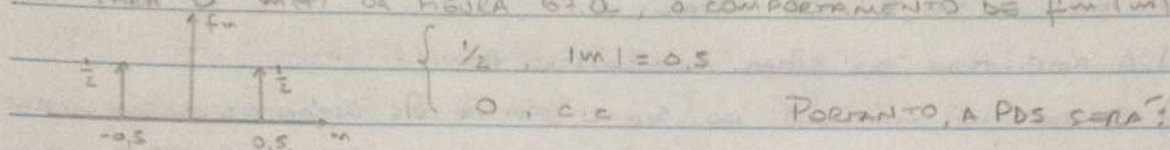 PARA O m(t) DA FIGURA 6.7.a, O COMPORTAMENTO DE fm(m)
fm
1/2
1/2
-0,5
0,5
m
{ 1/2 , |m| = 0,5
0 , c.c
PORTANTO, A PDS SERÁ: